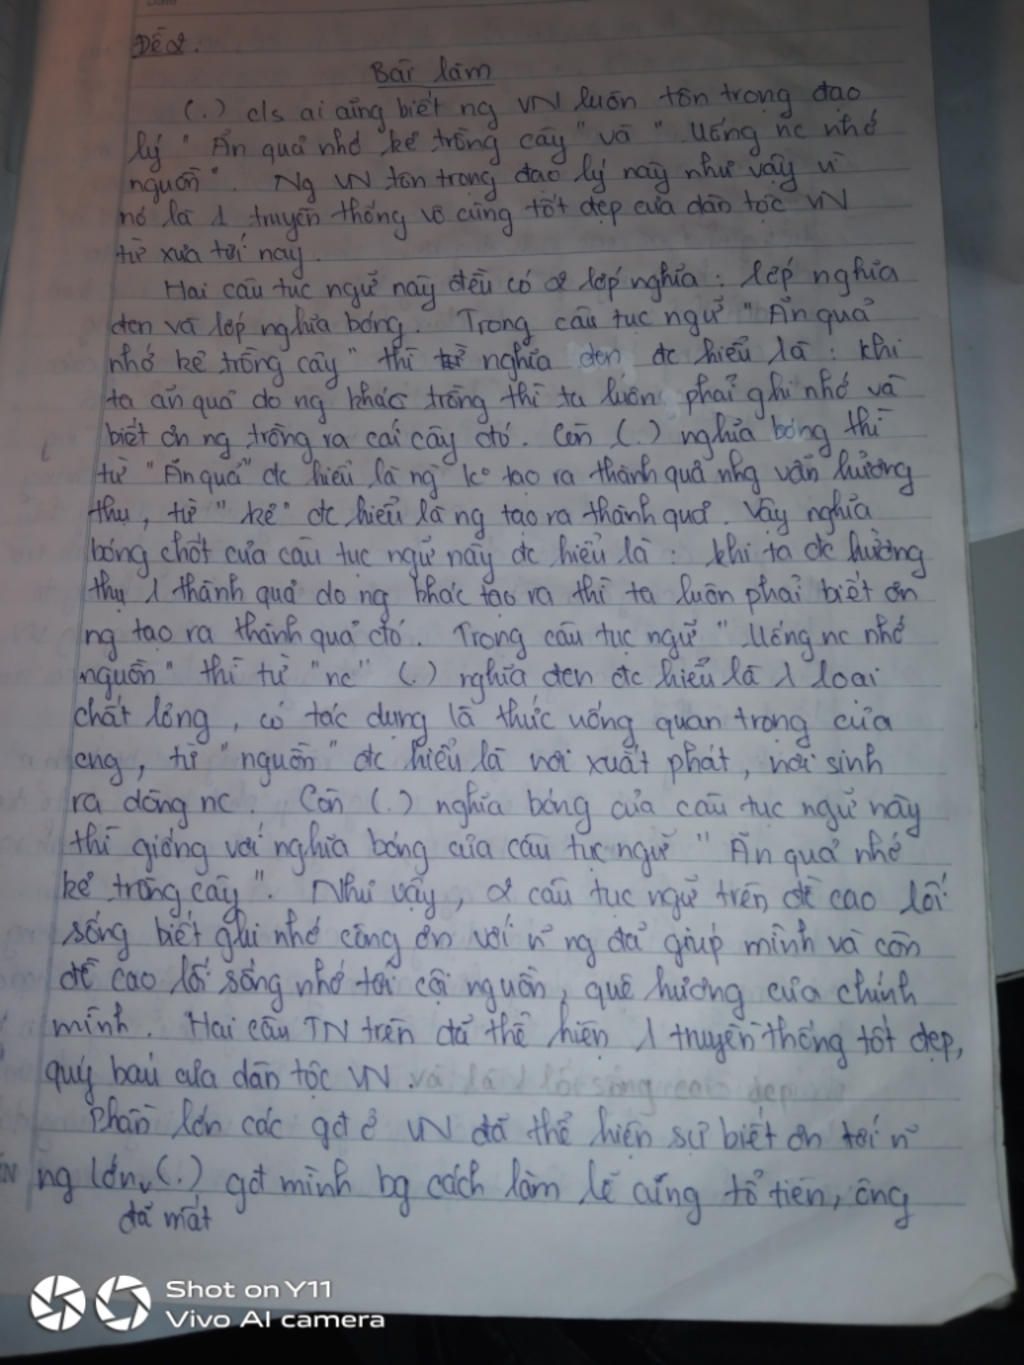 Đề 2.
Bài làm
(.) c/s ai cũng biết ng VN luôn tôn trọng đạo
lý "Ăn quả nhớ kẻ trồng cây" và "Uống nc nhớ
nguồn". Ng VN tôn trọng đạo lý này như vậy vì
nó là 1 truyền thống vô cùng tốt đẹp của dân tộc VN
từ xưa tới nay.
Hai câu tục ngữ này đều có 2 lớp nghĩa: lớp nghĩa
đen và lớp nghĩa bóng. Trong câu tục ngữ "Ăn quả
nhớ kẻ trồng cây" thì nghĩa đen đc hiểu là: khi
ta ăn quả do ng khác trồng thì ta luôn phải ghi nhớ và
biết ơn ng trồng ra cái cây đó. Còn (.) nghĩa bóng thì
từ "Ăn quả" đc hiểu là ng ko tạo ra thành quả nhg vẫn hưởng
thụ, từ "kẻ" đc hiểu là ng tạo ra thành quả. Vậy nghĩa
bóng chốt của câu tục ngữ này đc hiểu là: khi ta đc hưởng
thụ 1 thành quả do ng khác tạo ra thì ta luôn phải biết ơn
ng tạo ra thành quả đó. Trong câu tục ngữ "Uống nc nhớ
nguồn" thì từ "nc" (.) nghĩa đen đc hiểu là 1 loại
chất lỏng, có tác dụng là thức uống quan trọng của
cng, từ "nguồn" đc hiểu là nơi xuất phát, nơi sinh
ra dòng nc. Còn (.) nghĩa bóng của câu tục ngữ này
thì giống với nghĩa bóng của câu tục ngữ "Ăn quả nhớ
kẻ trồng cây". Như vậy, 2 câu tục ngữ trên đề cao lối
sống biết ghi nhớ công ơn với n~ ng đã giúp mình và còn
đề cao lối sống nhớ tới cội nguồn, quê hương của chính
mình. Hai câu TN trên đã thể hiện 1 truyền thống tốt đẹp,
quý báu của dân tộc VN và là 1 lối sống cao đẹp
Phần lớn các gđ ở VN đã thể hiện sự biết ơn tới n~
ng lớn (.) gđ mình bg cách làm lễ cúng tổ tiên, ông
đã mất
Shot on Y11
Vivo AI camera